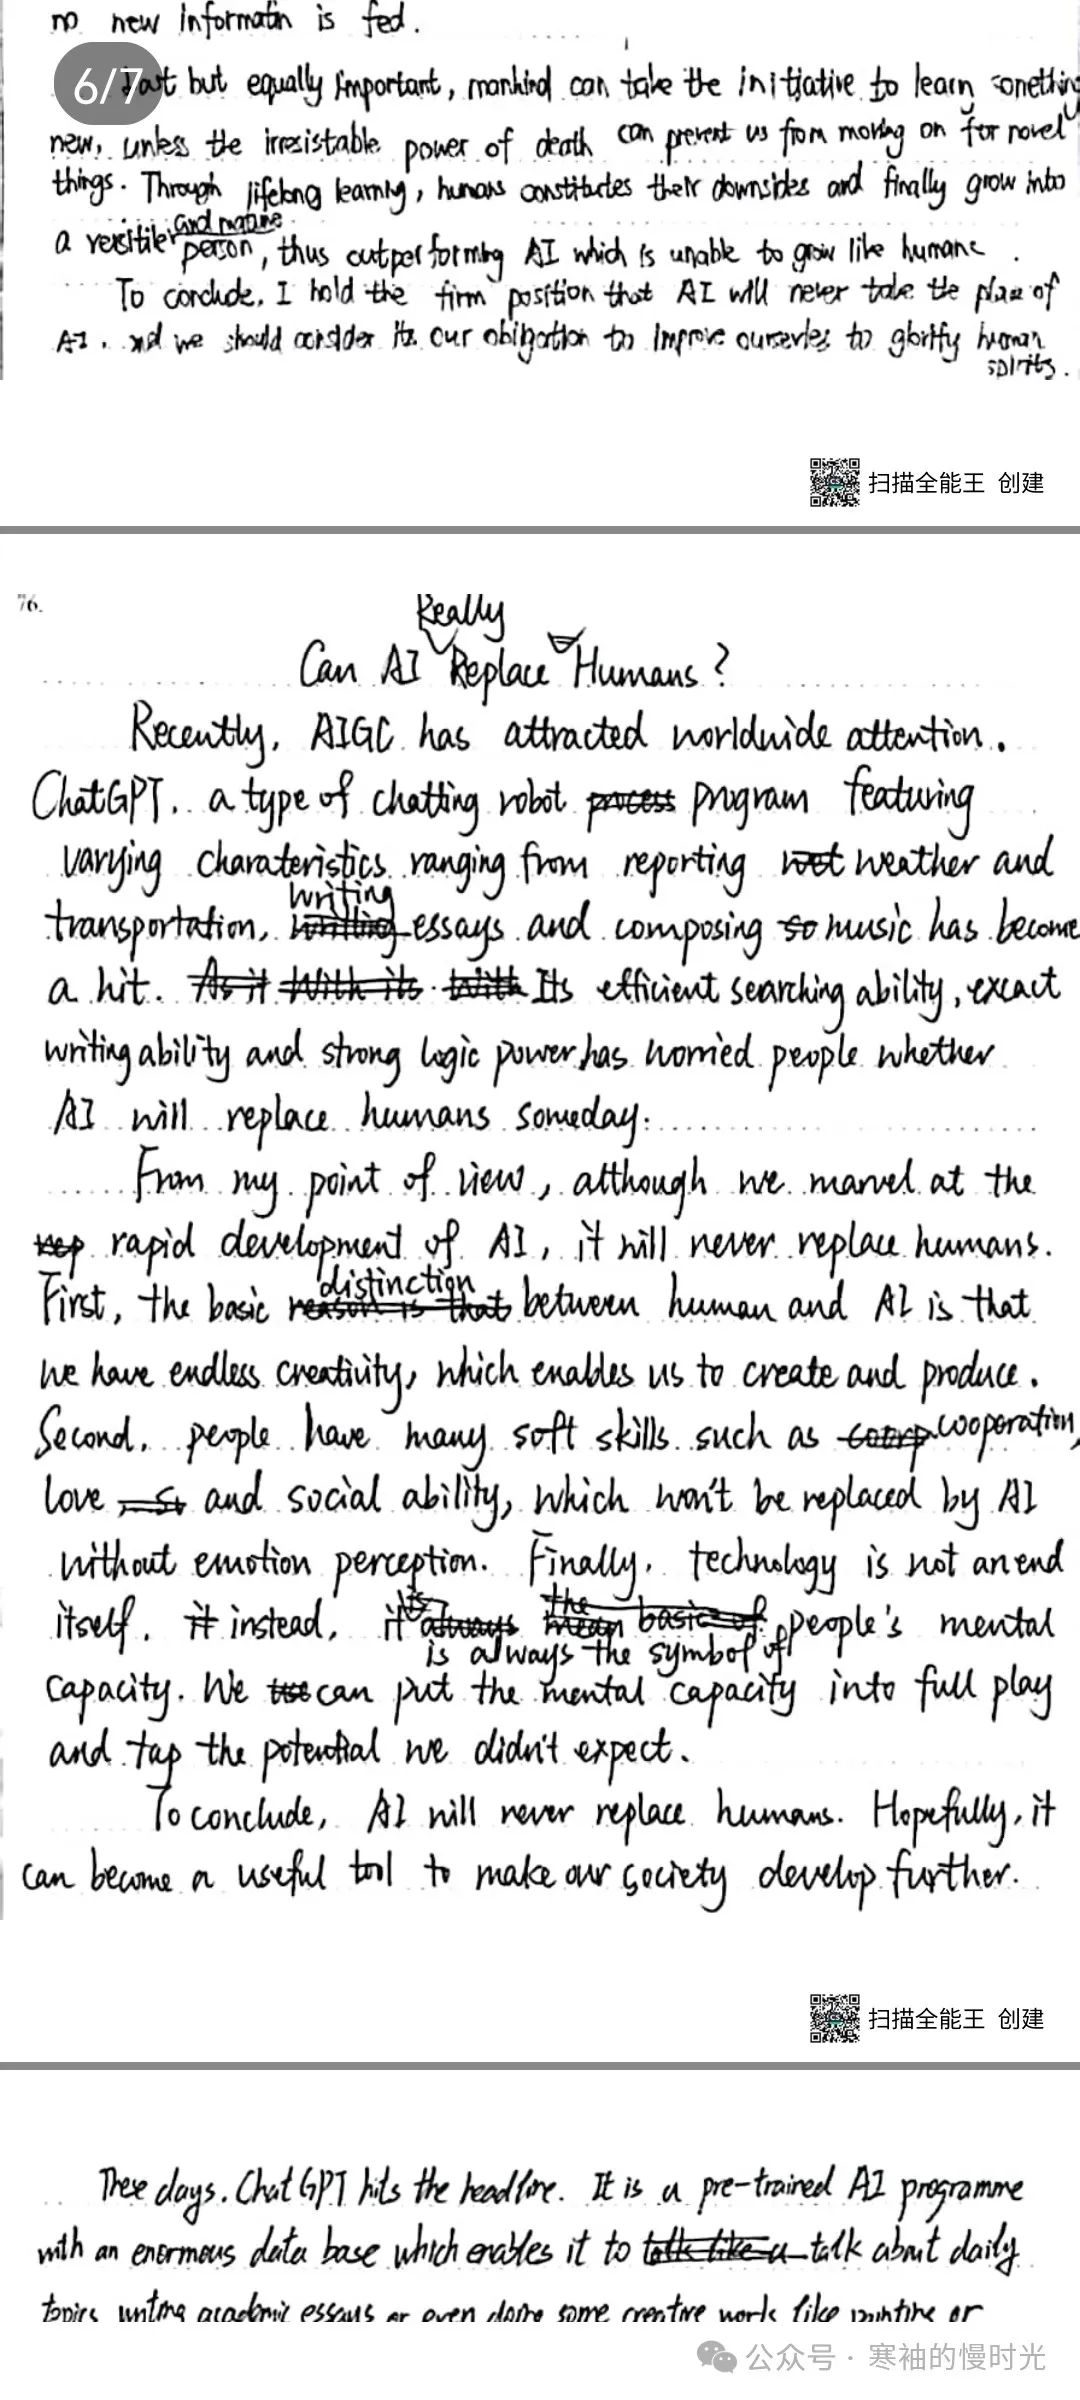 no new informatin is fed.
6/7
Last but equally important, mankind can take the initiative to learn something
new, unless the irresistable power of death can prevent us from moving on for novel
things. Through lifelong learning, humans constitutes their downsides and finally grow into
and mature
a person, thus outperforming AI which is unable to grow like humans.
To conclude, I hold the firm position that AI will never take the place of
AI, and we should consider it our obligation to improve ourselves to glorify human
spirits.
扫描全能王 创建
76.
Really
Can AI Replace Humans?
Recently, AIGC has attracted worldwide attention.
ChatGPT, a type of chatting robot process program featuring
varying charateristics ranging from reporting wet weather and
writing
transportation, essays and composing so music has become
a hit. As it With its With Its efficient searching ability, excact
writing ability and strong logic power has worried people whether
AI will replace humans someday.
From my point of view, although we marvel at the
rep rapid development of AI, it will never replace humans.
distinction
First, the basic reason is that between human and AI is that
we have endless creativity, which enables us to create and produce.
Second, people have many soft skills such as cooperation,
love and social ability, which won't be replaced by AI
without emotion perception. Finally, technology is not an end
itself, it instead, it always mean basic of people's mental
is always the symbol of
capacity. We can put the mental capacity into full play
and tap the potential we didn't expect.
To conclude, AI will never replace humans. Hopefully, it
can become a useful tool to make our society develop further.
扫描全能王 创建
These days, ChatGPT hits the headline. It is a pre-trained AI programme
with an enormous data base which enables it to talk like a talk about daily
topics, writing academic essays or even doing some creative work like painting or
公众号 · 寒袖的慢时光